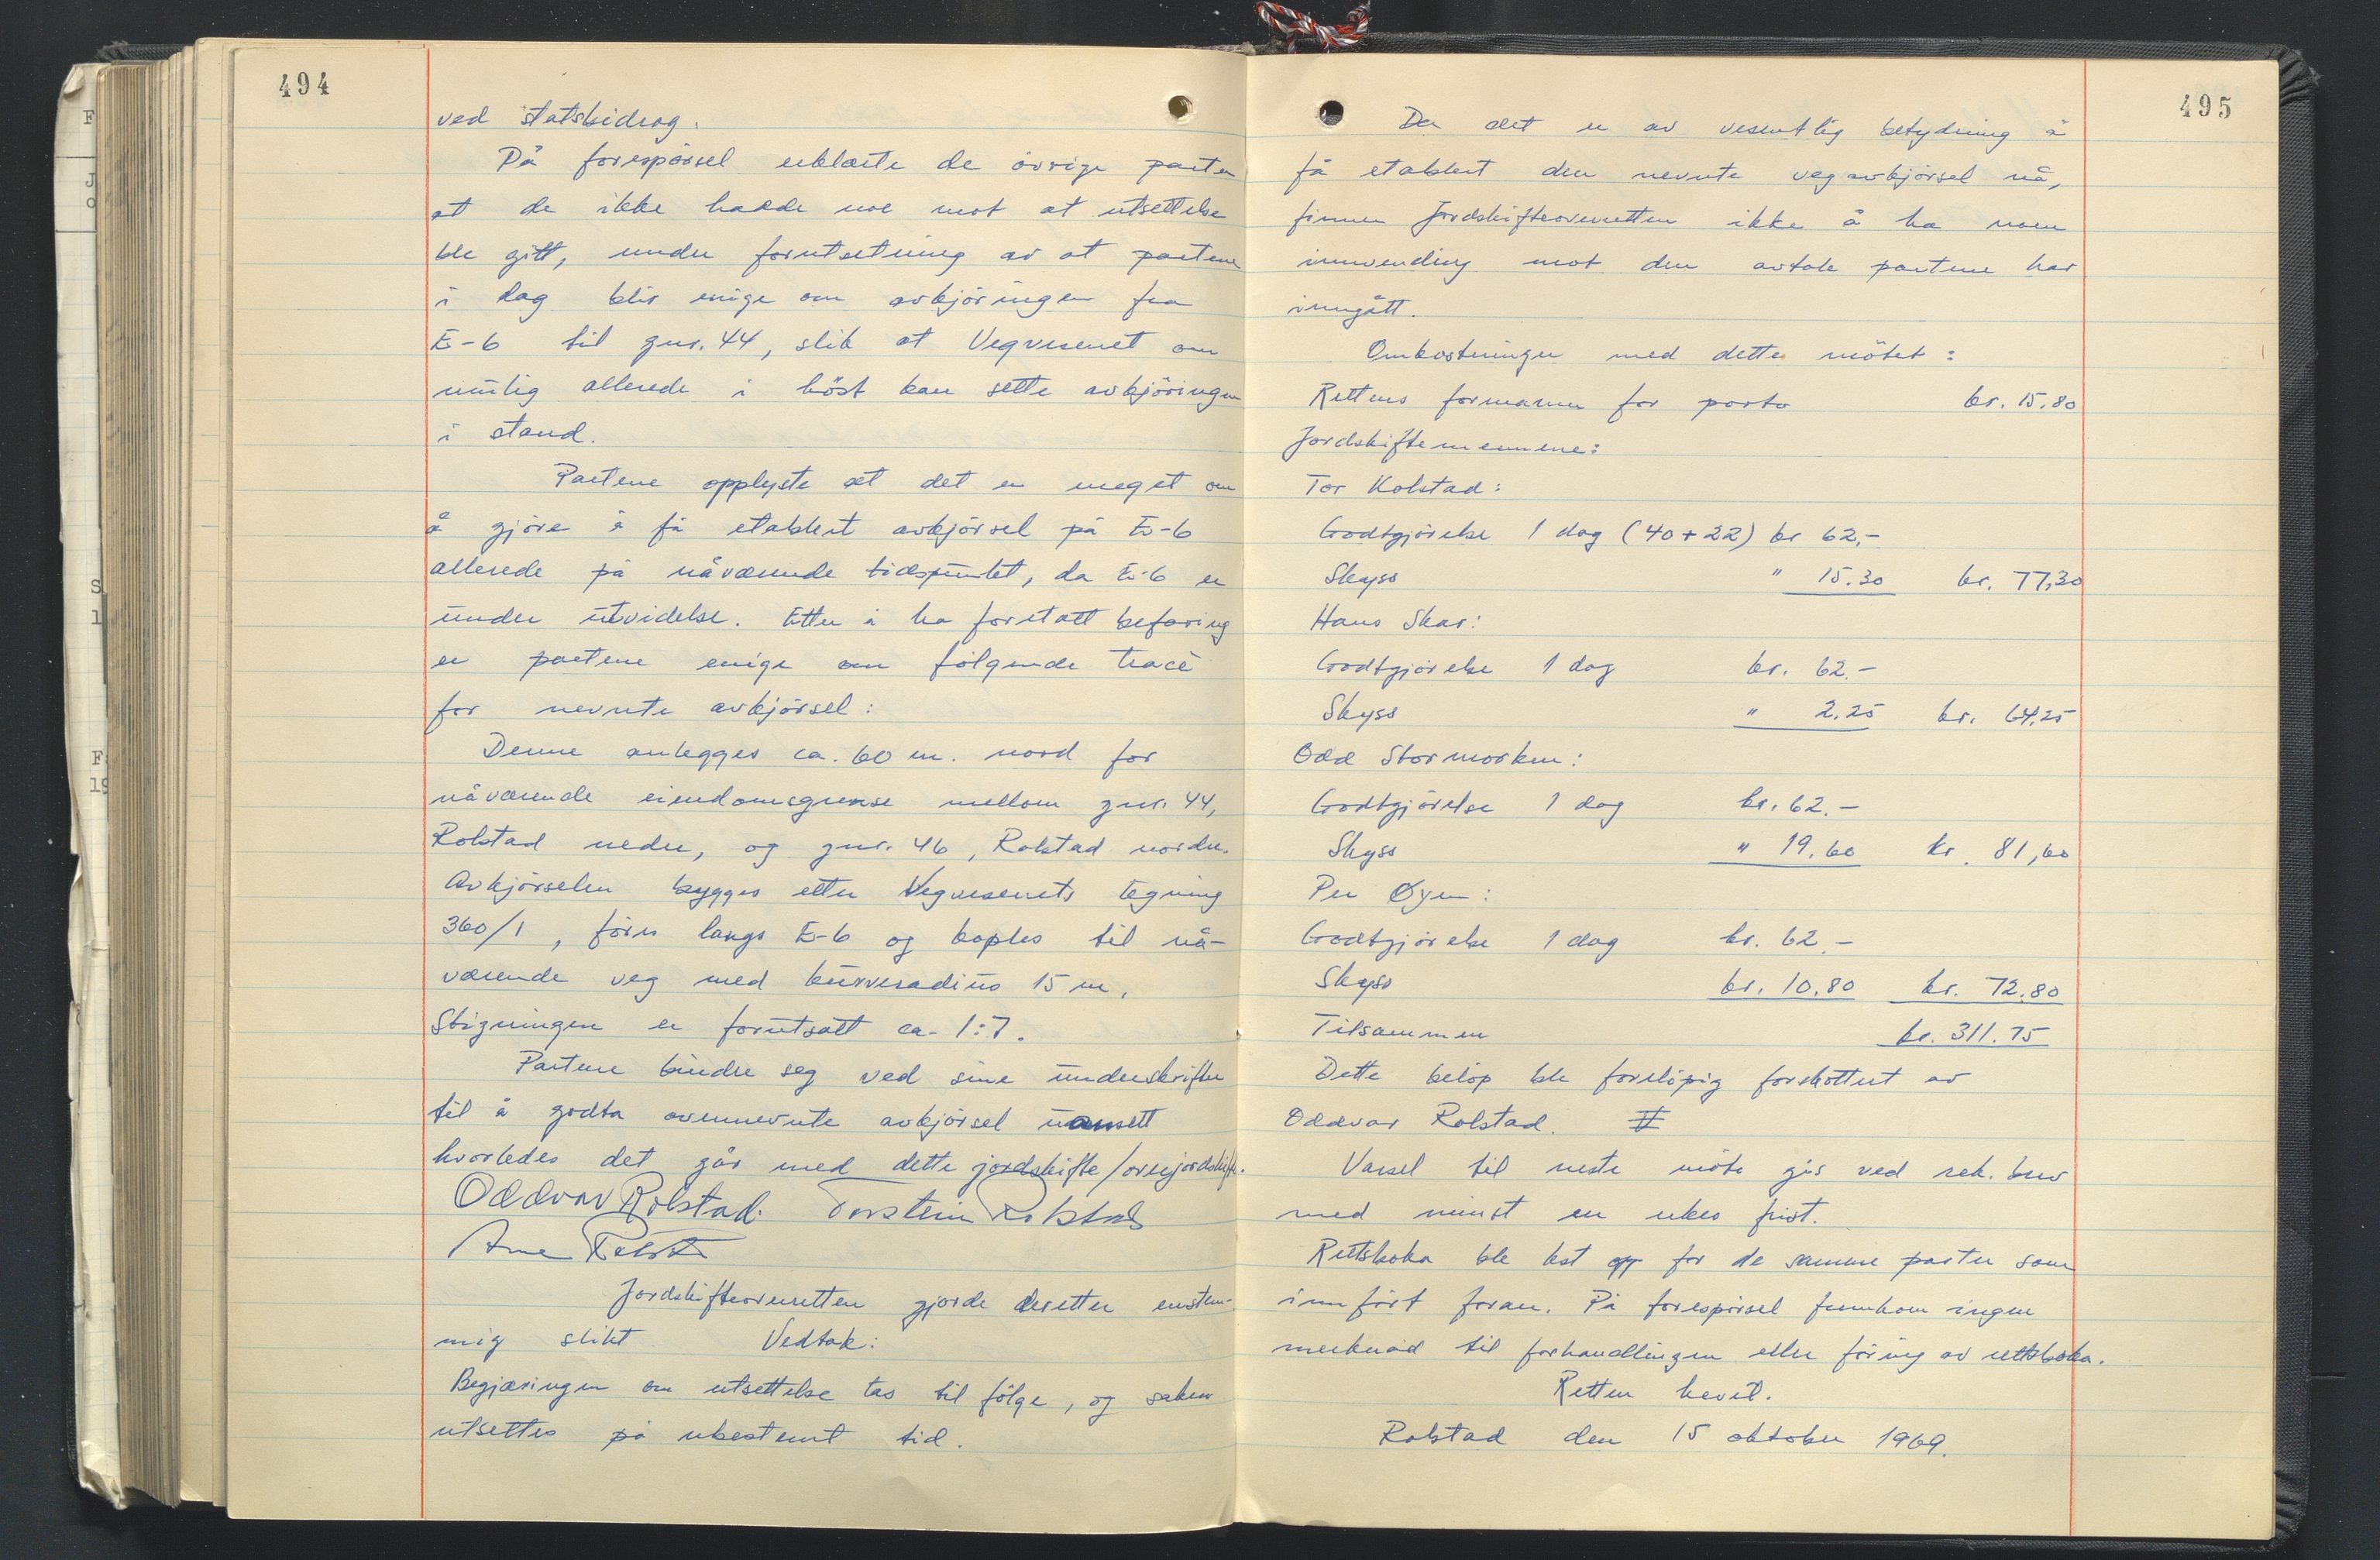 494
ved statsbidrag.
På forespörsel erklærte de övrige parter
at de ikke hadde noe mot at utsettelse
ble gitt, under forutsetning av at partene
i dag blir enige om avkjöringen fra
E-6 til gnr. 44, slik at Vegvesenet om
mulig allerede i höst kan sette avkjöringen
i stand.
Partene opplyste at det er meget om
å gjöre å få etablert avkjörsel på E-6
allerede på nåværende tidspunktet, da E-6 er
under utvidelse. Etter å ha foretatt befaring
er partene enige om fölgende tracè
for nevnte avkjörsel:
Denne anlegges ca. 60 m. nord for
nåværende eiendomsgrense mellom gnr. 44,
Rolstad nedre, og gnr. 46, Rolstad nordre.
Avkjörselen bygges etter Vegvesenets tegning
360/1, föres langs E-6 og koples til nå-
værende veg med kurveradius 15 m.
Stigningen er forutsatt ca. 1:7.
Partene binder seg ved sine underskrifter
til å godta ovennevnte avkjörsel uansett
hvorledes det går med dette jordskifte/overjordskifte.
Oddvar Rolstad. Torstein Rolstad
Arne Rolstad
Jordskifteoverretten gjorde deretter enstem-
mig slikt Vedtak:
Begjæringen om utsettelse tas til fölge, og saken
utsettes på ubestemt tid.
495
Da det er av vesentlig betydning å
få etablert den nevnte vegavkjörsel nå,
finner Jordskifteoverretten ikke å ha noen
innvending mot den avtale partene har
inngått.
Omkostninger med dette mötet:
Rettens formann for porto kr. 15.80
Jordskiftemennene:
Tor Kolstad:
Godtgjörelse 1 dag (40+22) kr 62,-
Skyss " 15.30 kr. 77,30
Hans Skar:
Godtgjörelse 1 dag kr. 62.-
Skyss " 2.25 kr. 64.25
Odd Stormorken:
Godtgjörelse 1 dag kr. 62.-
Skyss " 19.60 kr. 81,60
Per Øyen:
Godtgjörelse 1 dag kr. 62.-
Skyss kr. 10.80 kr. 72.80
Tilsammen kr. 311.75
Dette belöp ble forelöpig forskottert av
Oddvar Rolstad.
Varsel til neste möte gis ved rek. brev
med minst en ukes frist.
Rettsboka ble lest opp for de samme parter som
innfört foran. På forespörsel framkom ingen
merknad til forhandlingen eller föring av rettsboka.
Retten hevet.
Rolstad den 15 oktober 1969.